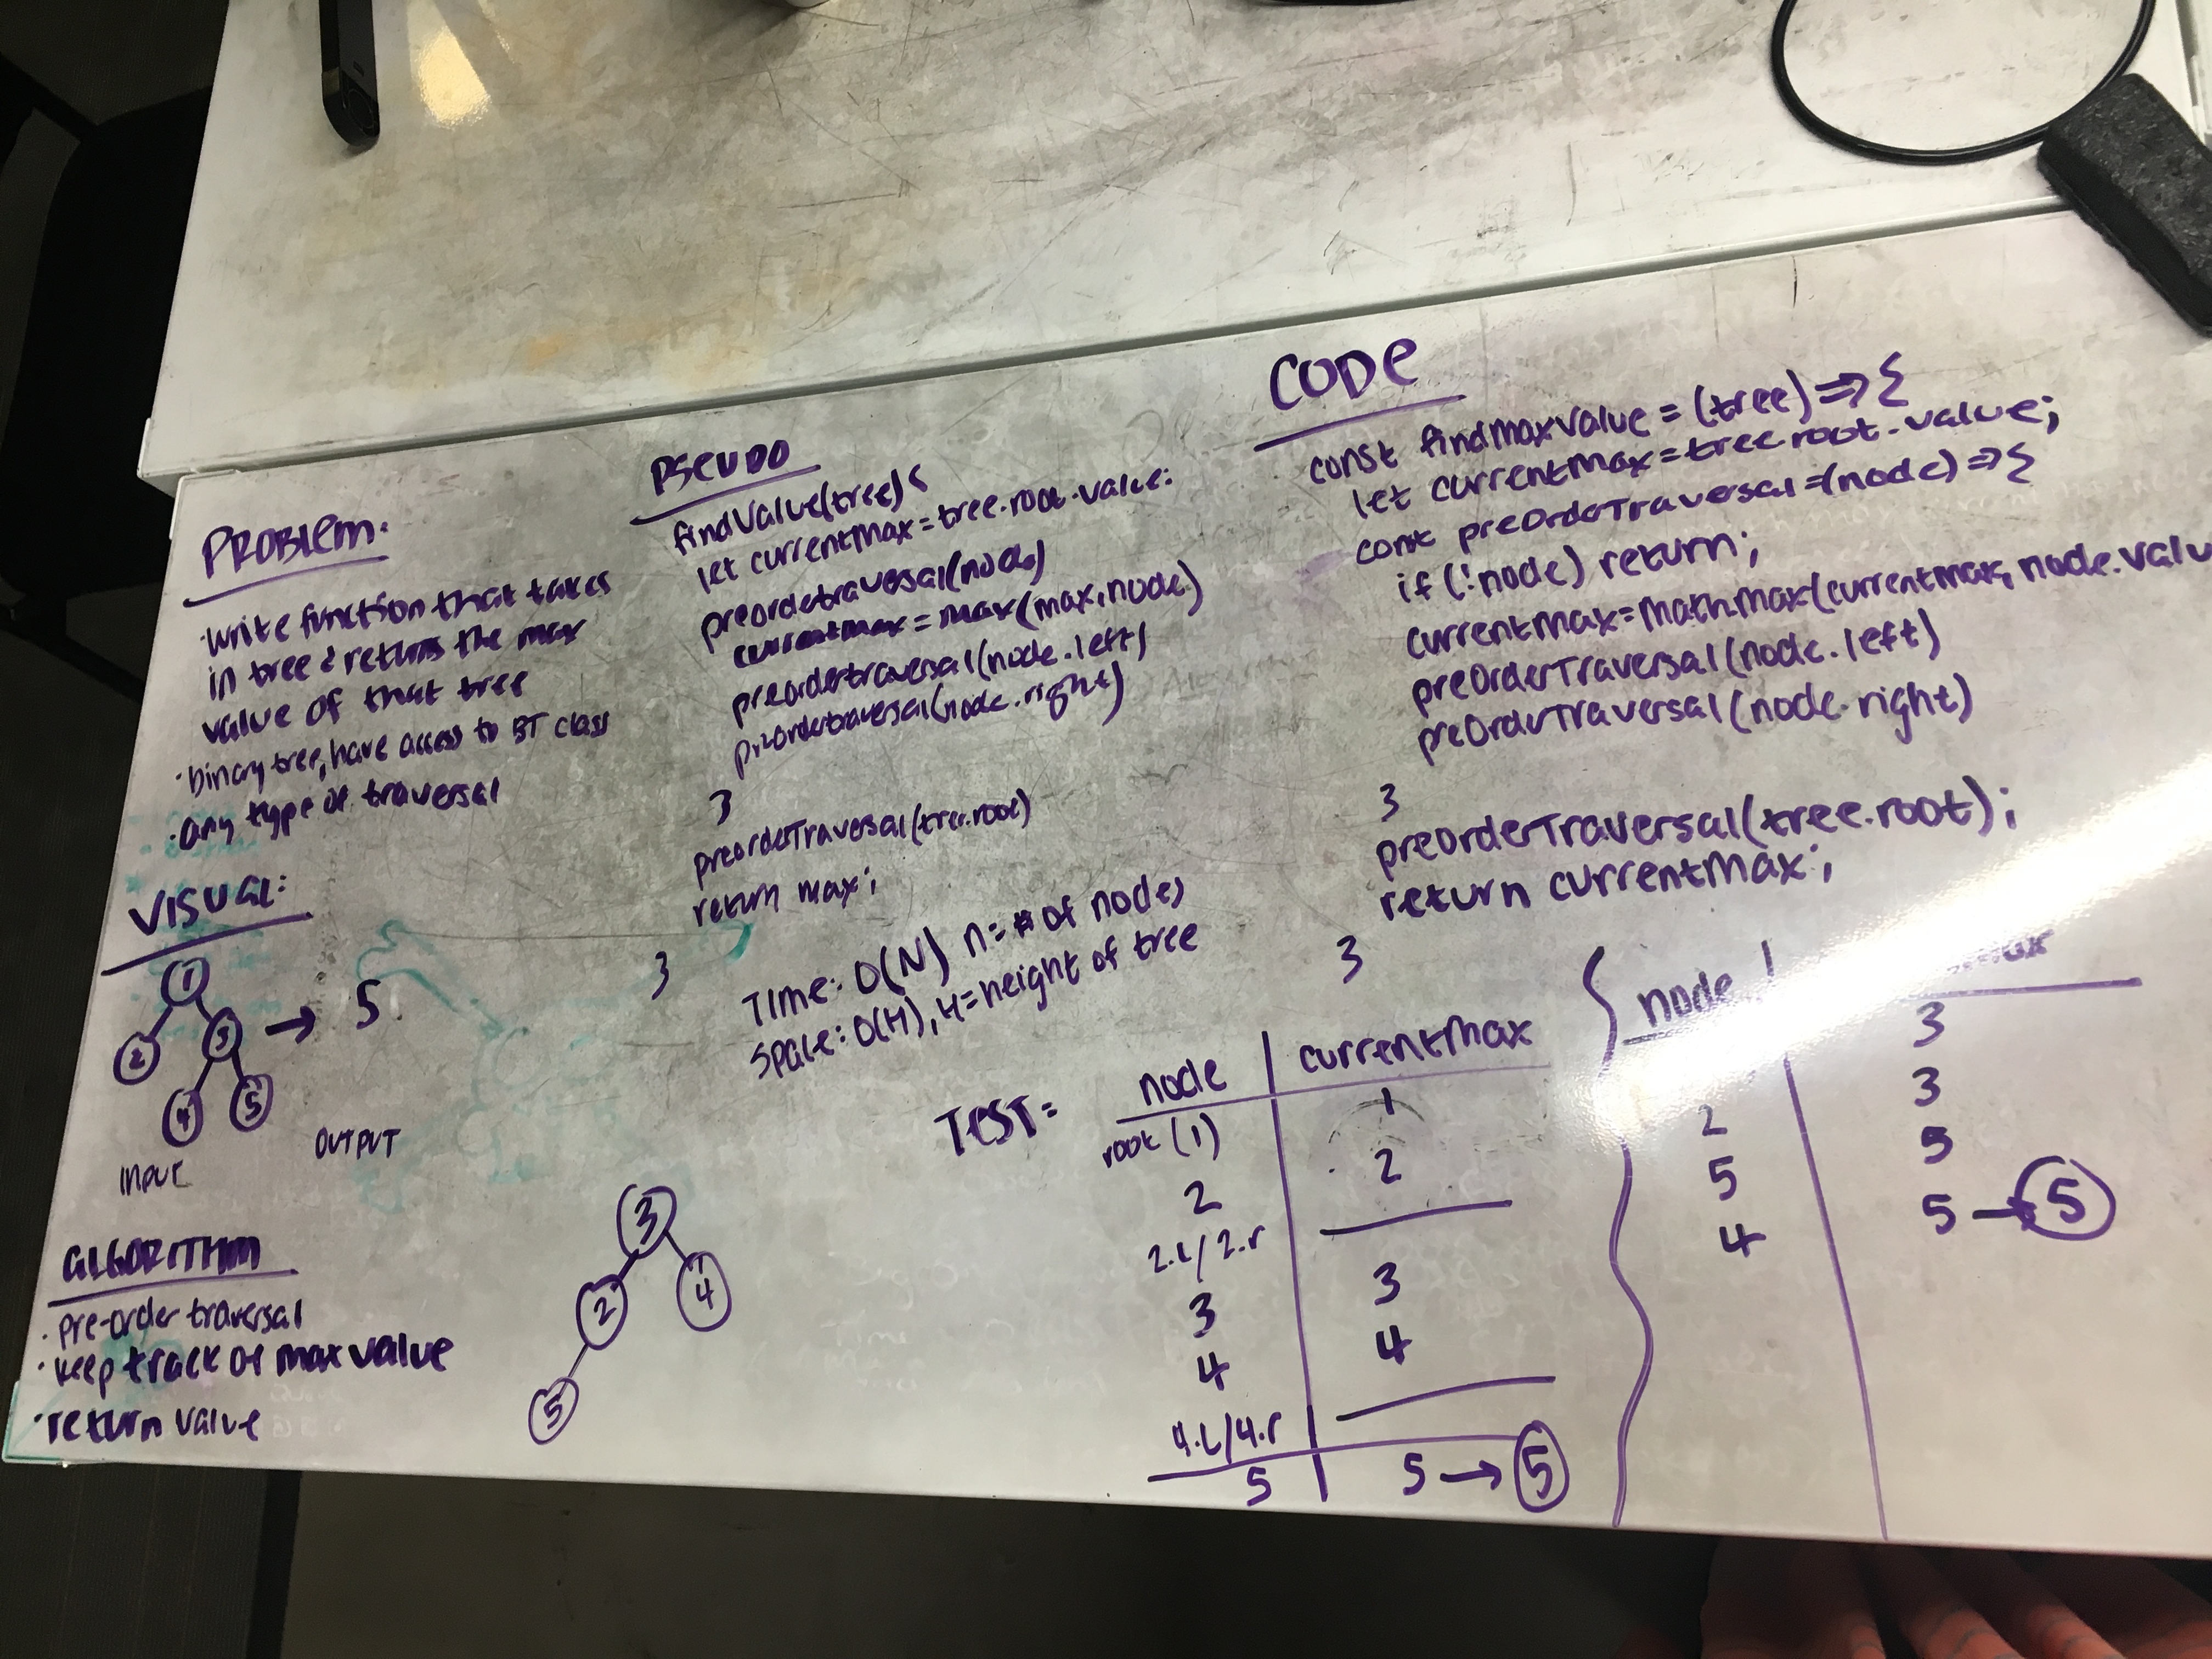 PROBLEM:
· write function that takes
in tree & returns the max
value of that tree
· binary tree, have access to BT class
· Any type of traversal
VISUAL:
1
2
3
4
5
→ 5
INPUT
OUTPUT
ALGORITHM
· pre-order traversal
· keep track of max value
· return value
3
2
4
5
PSEUDO
findValue(tree){
let currentMax = tree.root.value;
preordertraversal(node)
currentmax = max(max, node)
preordertraversal(node.left)
preordertraversal(node.right)
}
preorderTraversal(tree.root)
return max;
}
TIME: O(N) n = # of nodes
SPACE: O(H), H = height of tree
CODE
const findmaxvalue = (tree) => {
let currentmax = tree.root.value;
const preorderTraversal = (node) => {
if (!node) return;
currentmax = Math.max(currentmax, node.valu
preOrderTraversal(node.left)
preOrderTraversal(node.right)
}
preorderTraversal(tree.root);
return currentMax;
}
TEST:
node | currentMax
root (1) 1
2 2
2.L/2.r
3 3
4 4
4.L/4.r
5 5 → 5
node
3
2 3
5 5
4 5 → 5